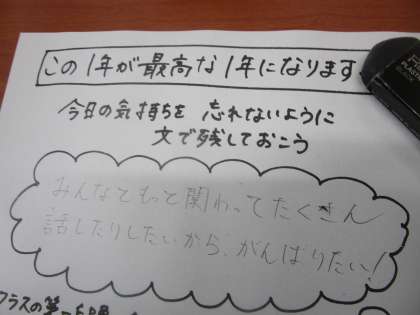 この1年が最高な1年になります
今日の気持ちを 忘れないように
文で残しておこう
みんなともっと関わってたくさん
話したりしたいから、がんばりたい!
クラスの第一歩目